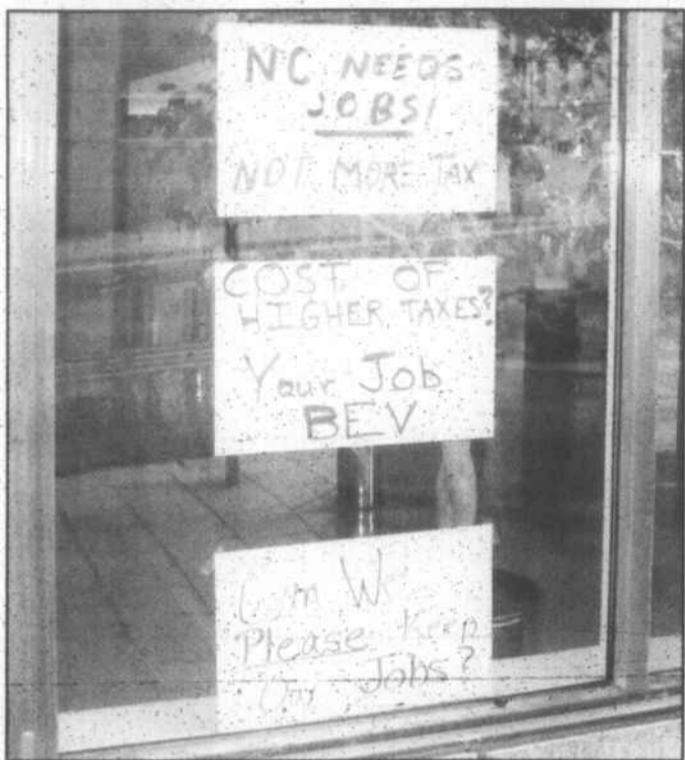 NC NEEDS
JOBS!
NOT MORE TAX
COST OF
HIGHER TAXES?
Your Job
BEV
Can We
Please Keep
Our Jobs?